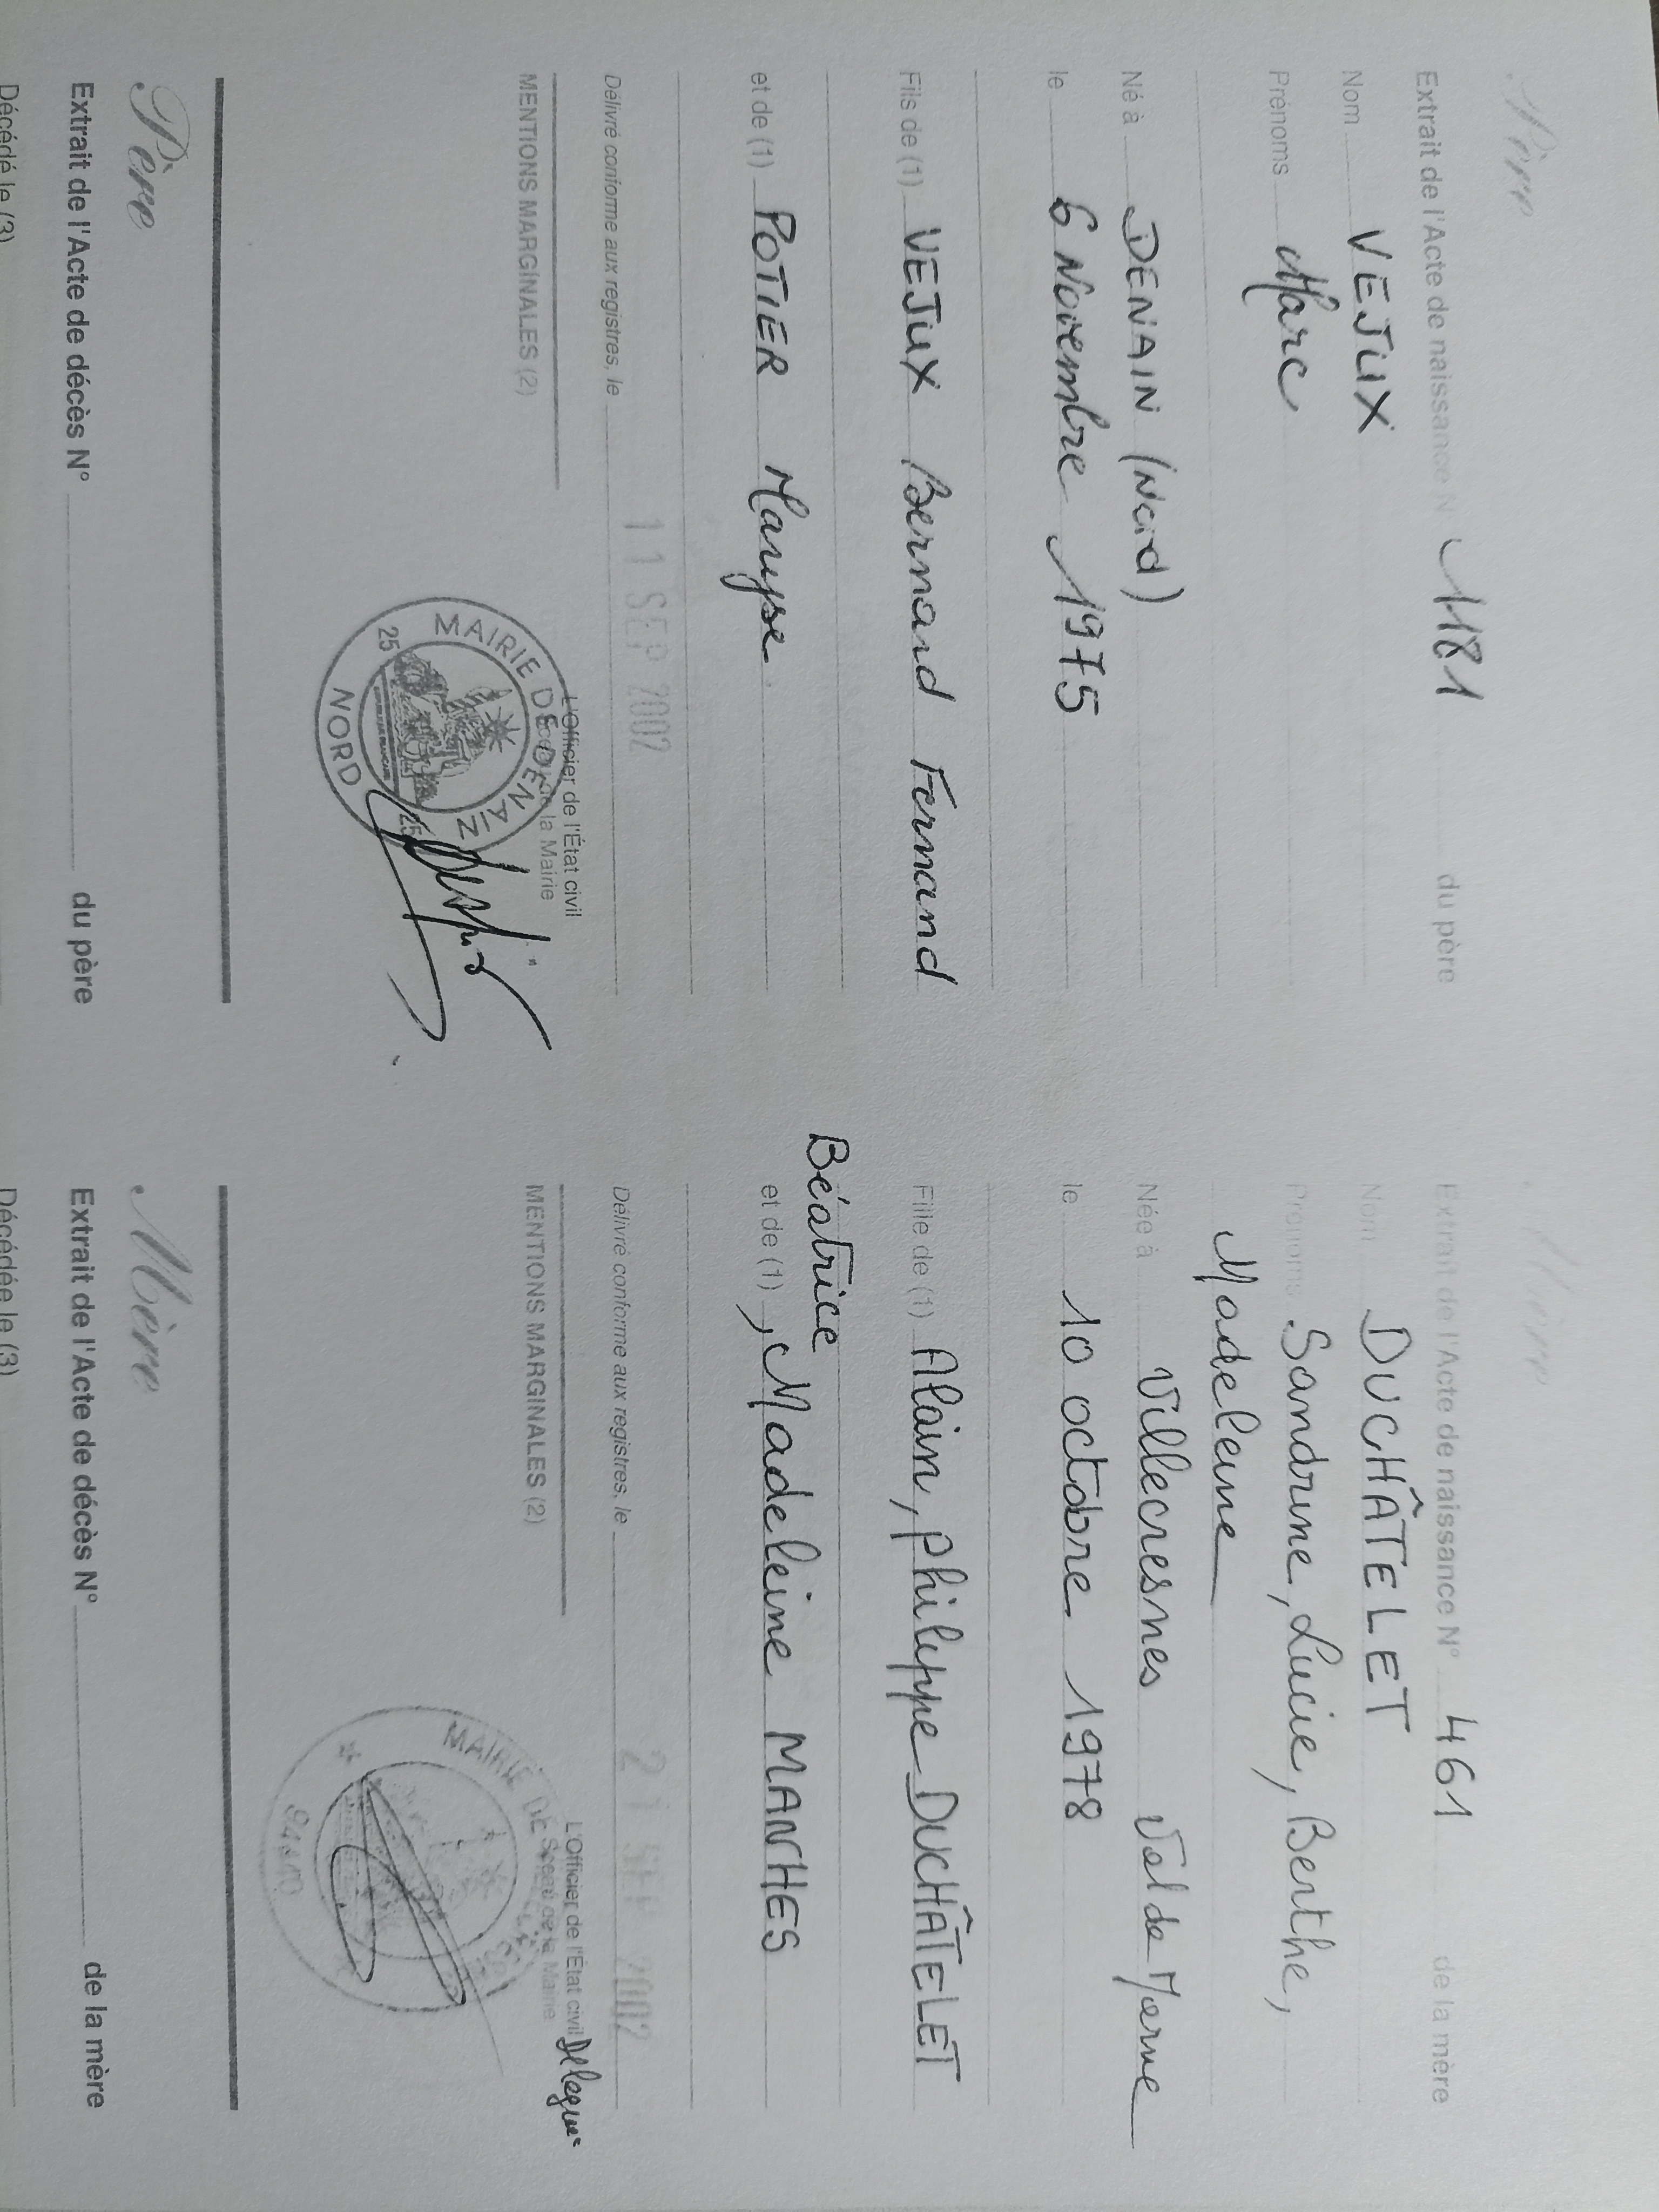 Père
Extrait de l'Acte de naissance N° 1181 du père
Nom VEJUX
Prénoms Marc
Né à DENAIN (Nord)
le 6 Novembre 1975
Fils de (1) VEJUX Bernard Fernand
et de (1) POTIER Maryse
Délivré conforme aux registres, le 11 SEP 2002
MENTIONS MARGINALES (2)
L'Officier de l'État civil
Sceau de la Mairie
MAIRIE DE DENAIN
25 25
NORD
Père
Extrait de l'Acte de décès N° du père
Décédé le (3)
Mère
Extrait de l'Acte de naissance N° 461 de la mère
Nom DUCHÂTELET
Prénoms Sandrine, Lucie, Berthe,
Madeleine
Née à Villecresnes Val de Marne
le 10 octobre 1978
Fille de (1) Alain, Philippe DUCHÂTELET
Béatrice
et de (1) , Madeleine MANHES
Délivré conforme aux registres, le 21 SEP 2002
MENTIONS MARGINALES (2)
L'Officier de l'État civil Délégué
Sceau de la Mairie
MAIRIE DE
Mère
Extrait de l'Acte de décès N° de la mère
Décédée le (3)